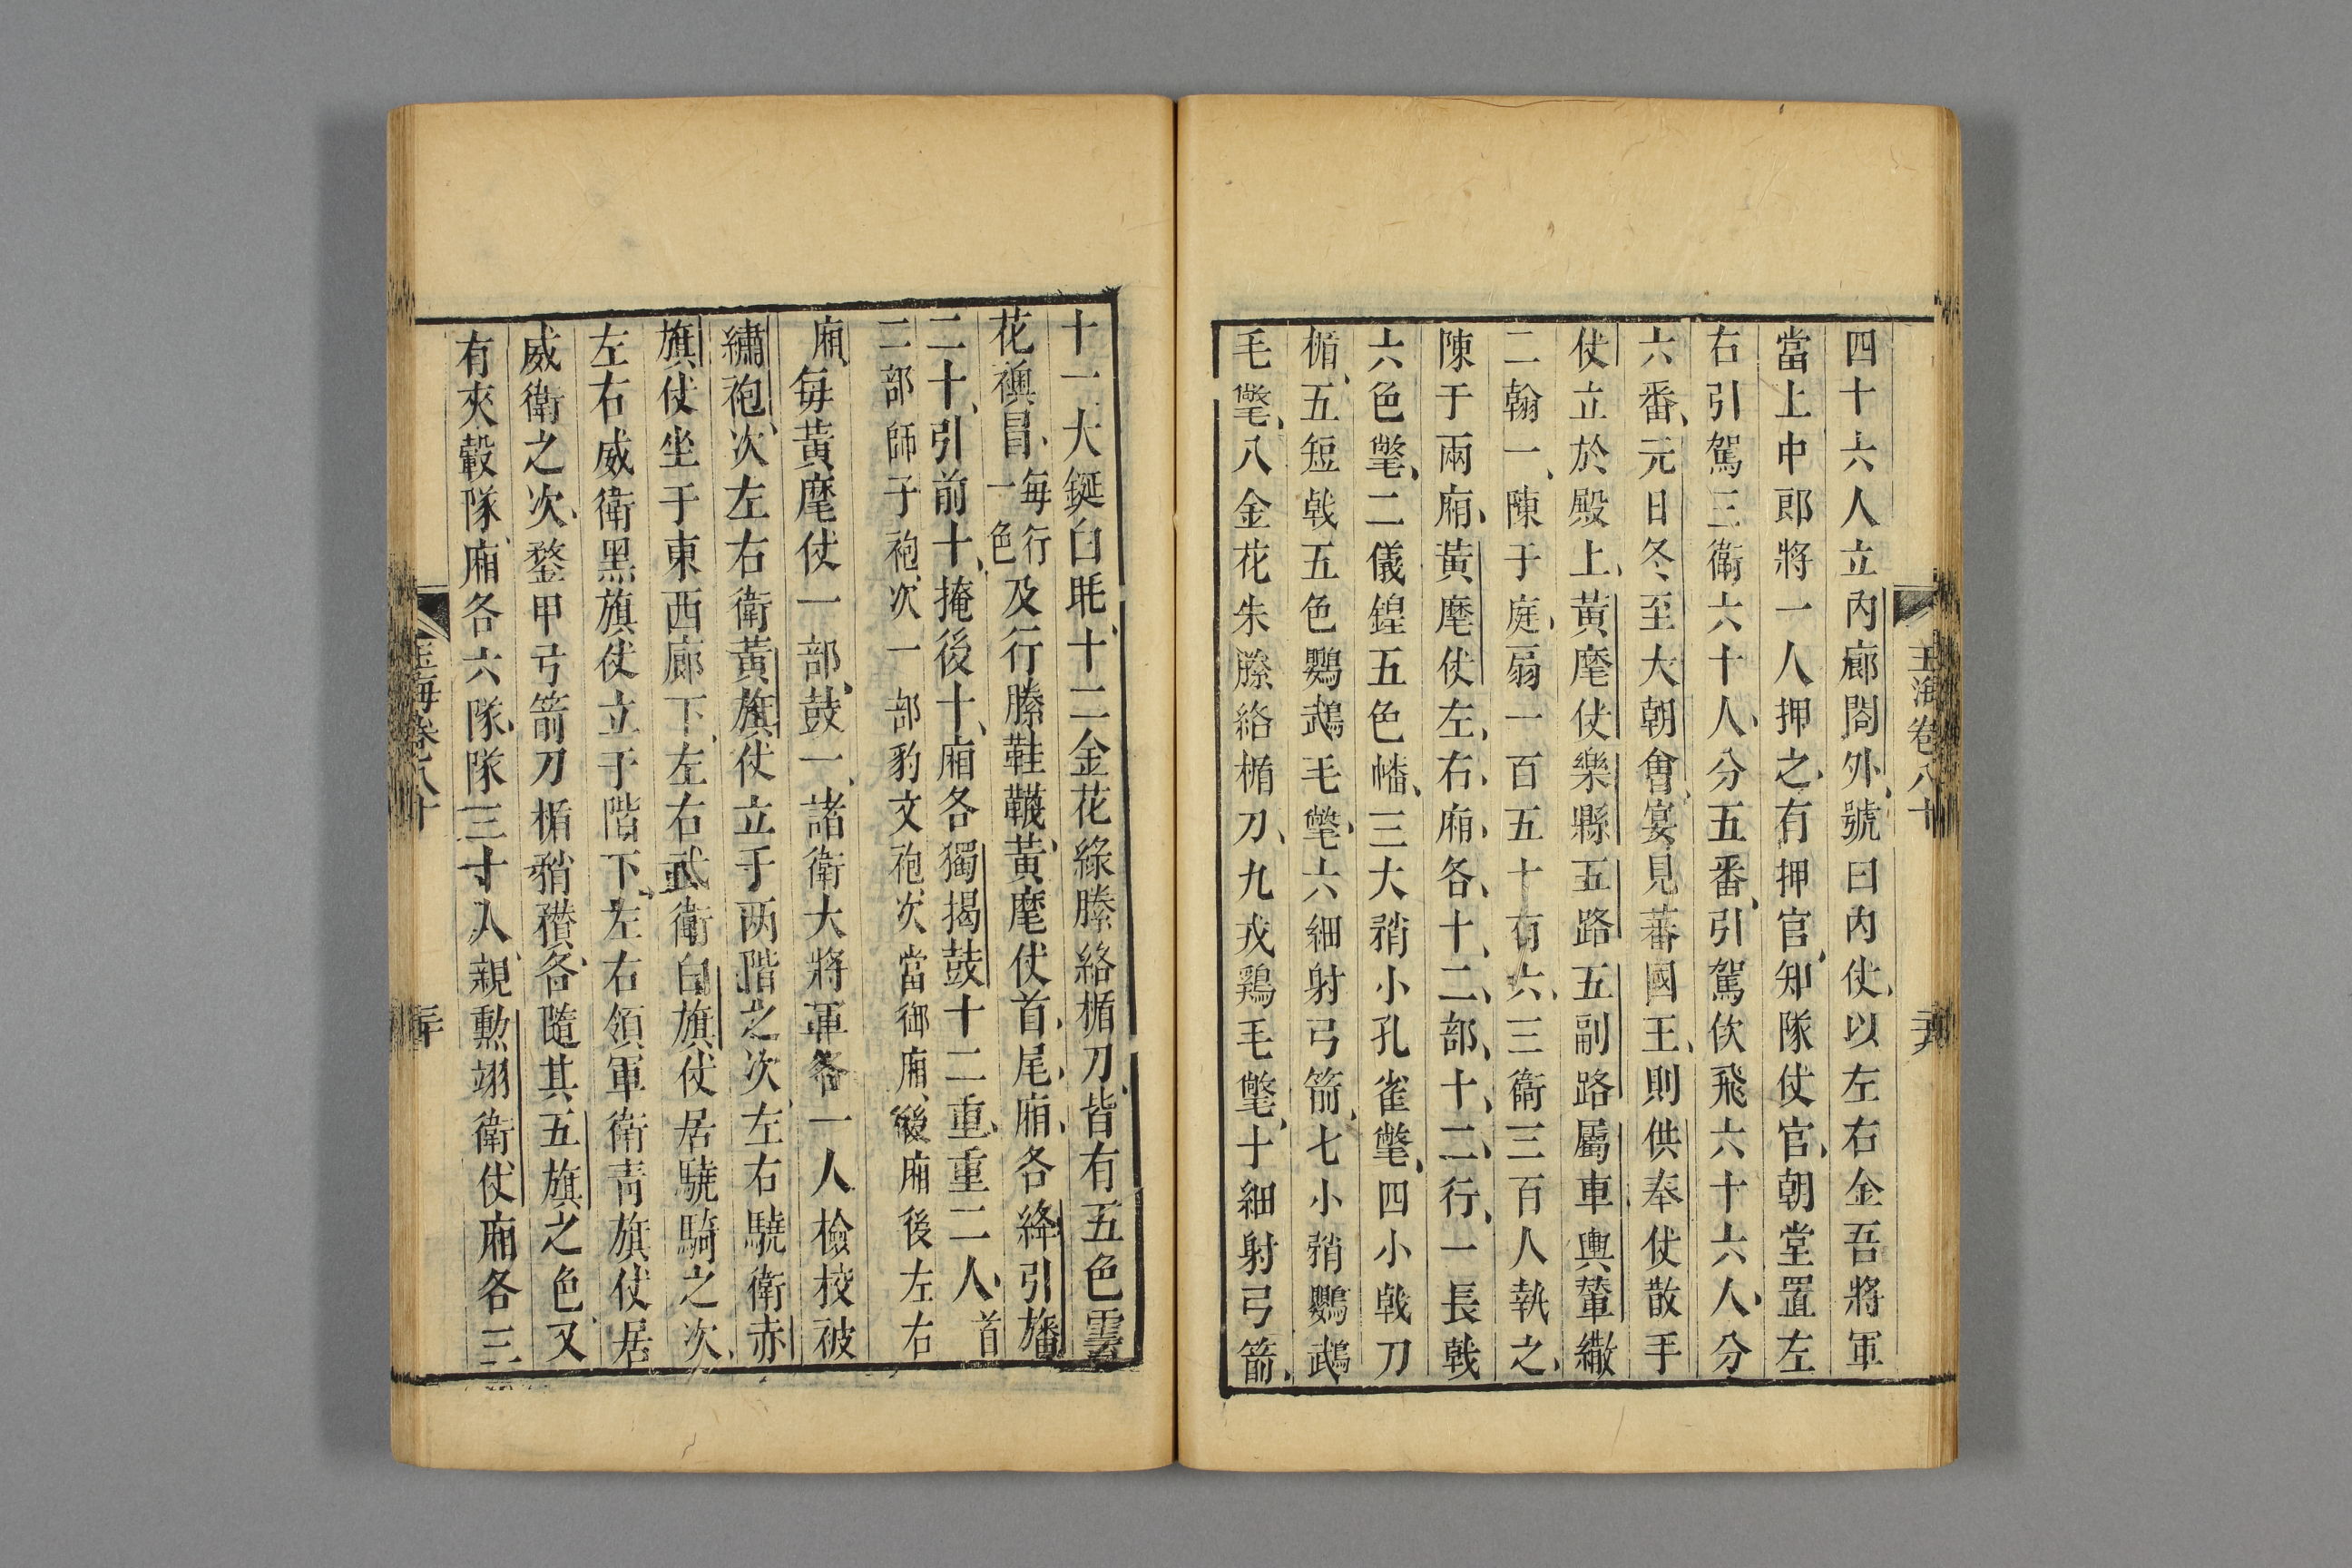 玉海卷八十
四十六人立內廊閤外號曰內仗以左右金吾將軍
當上中郎將一人押之有押官知隊仗官朝堂置左
右引駕三衛六十人分五番引駕佽飛六十六人分
六番元日冬至大朝會宴見蕃國王則供奉仗散手
仗立於殿上黃麾仗樂縣五路五副路屬車輿輦繖
二翰一陳于庭扇一百五十有六三衛三百人執之
陳于兩廂黃麾仗左右廂各十二部十二行一長戟
六色氅二儀鍠五色幡三大矟小孔雀氅四小戟刀
楯五短戟五色鸚鵡毛氅六細射弓箭七小矟鸚鵡
毛氅八金花朱縢絡楯刀九戎鶏毛氅十細射弓箭
十一大鋋白毦十二金花綠縢絡楯刀皆有五色雲
花襖冒每行一色及行縢鞋韈黃麾仗首尾廂各絳引旛
二十引前十掩後十廂各獨揭鼓十二重重二人首
二部師子袍次一部豹文袍次當御廂後廂後左右
廂每黃麾仗一部鼓一諸衛大將軍各一人檢校被
繡袍次左右衛黃旗仗立于两階之次左右驍衛赤
旗仗坐于東西廊下左右武衛白旗仗居驍騎之次
左右威衛黑旗仗立于階下左右領軍衛靑旗仗居
威衛之次鍪甲弓箭刀楯矟穳各隨其五旗之色又
有夾轂隊廂各六隊隊三十人親勲翊衛仗廂各三
玉海卷八十